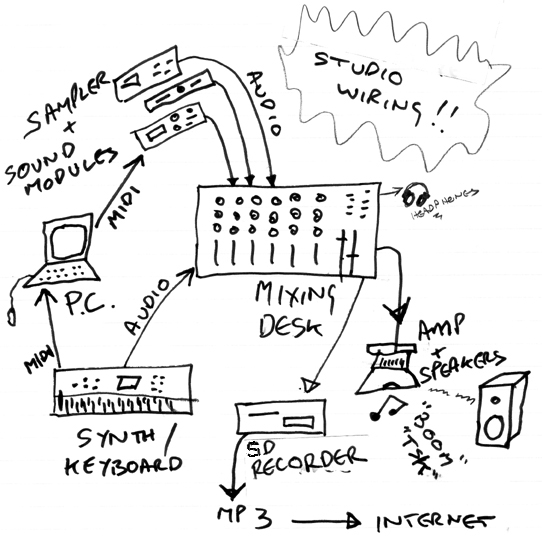 STUDIO
WIRING!!
SAMPLER
+
SOUND
MODULES
AUDIO
MIDI
HEADPHONES
P.C.
AUDIO
MIXING
DESK
MIDI
AMP
+
SPEAKERS
"BOOM
TSK"
SYNTH/
KEYBOARD
SD
RECORDER
MP3
INTERNET